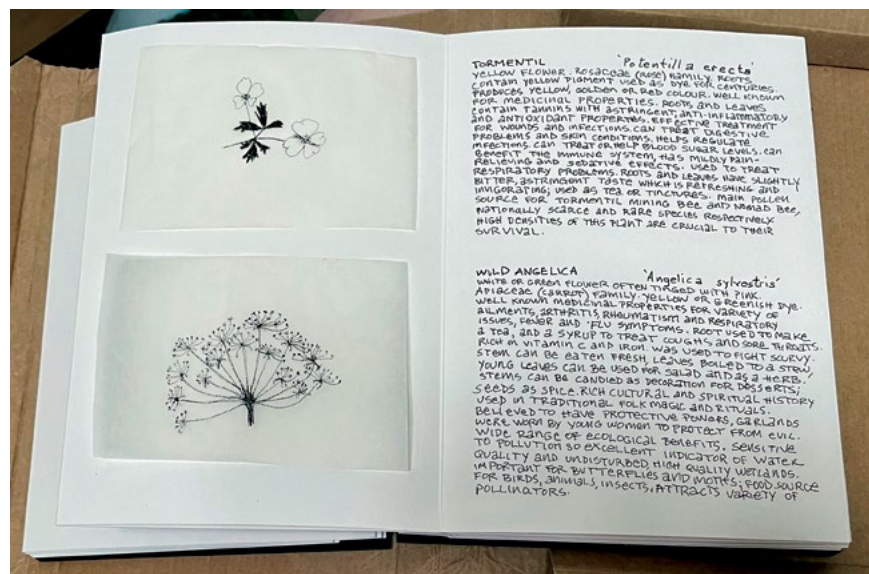 TORMENTIL 'Potentilla erecta'
YELLOW FLOWER. ROSACEAE (ROSE) FAMILY. ROOTS
CONTAIN YELLOW PIGMENT USED AS DYE FOR CENTURIES.
PRODUCES YELLOW, GOLDEN OR RED COLOUR. WELL KNOWN
FOR MEDICINAL PROPERTIES. ROOTS AND LEAVES
CONTAIN TANNINS WITH ASTRINGENT, ANTI-INFLAMMATORY
AND ANTIOXIDANT PROPERTIES. EFFECTIVE TREATMENT
FOR WOUNDS AND INFECTIONS. CAN TREAT DIGESTIVE
PROBLEMS AND SKIN CONDITIONS. HELPS REGULATE
INFECTIONS. CAN TREAT OR HELP BLOOD SUGAR LEVELS. CAN
BENEFIT THE IMMUNE SYSTEM, HAS MILDLY PAIN-
RELIEVING AND SEDATIVE EFFECTS. USED TO TREAT
RESPIRATORY PROBLEMS. ROOTS AND LEAVES HAVE SLIGHTLY
BITTER, ASTRINGENT TASTE WHICH IS REFRESHING AND
INVIGORATING; USED AS TEA OR TINCTURES. MAIN POLLEN
SOURCE FOR TORMENTIL MINING BEE AND NOMAD BEE,
NATIONALLY SCARCE AND RARE SPECIES RESPECTIVELY.
HIGH DENSITIES OF THIS PLANT ARE CRUCIAL TO THEIR
SURVIVAL.
WILD ANGELICA 'Angelica sylvestris'
WHITE OR GREEN FLOWER OFTEN TINGED WITH PINK.
APIACEAE (CARROT) FAMILY. YELLOW OR GREENISH DYE.
WELL KNOWN MEDICINAL PROPERTIES FOR VARIETY OF
AILMENTS, ARTHRITIS, RHEUMATISM AND RESPIRATORY
ISSUES, FEVER AND 'FLU SYMPTOMS. ROOT USED TO MAKE
A TEA, AND A SYRUP TO TREAT COUGHS AND SORE THROATS.
RICH IN VITAMIN C AND IRON. WAS USED TO FIGHT SCURVY.
STEM CAN BE EATEN FRESH, LEAVES BOILED TO A STEW,
YOUNG LEAVES CAN BE USED FOR SALAD AND AS A HERB.
STEMS CAN BE CANDIED AS DECORATION FOR DESSERTS;
SEEDS AS SPICE. RICH CULTURAL AND SPIRITUAL HISTORY
USED IN TRADITIONAL FOLK MAGIC AND RITUALS.
BELIEVED TO HAVE PROTECTIVE POWERS, GARLANDS
WERE WORN BY YOUNG WOMEN TO PROTECT FROM EVIL.
WIDE RANGE OF ECOLOGICAL BENEFITS. SENSITIVE
TO POLLUTION SO EXCELLENT INDICATOR OF WATER
QUALITY AND UNDISTURBED, HIGH QUALITY WETLANDS.
IMPORTANT FOR BUTTERFLIES AND MOTHS; FOOD SOURCE
FOR BIRDS, ANIMALS, INSECTS. ATTRACTS VARIETY OF
POLLINATORS.